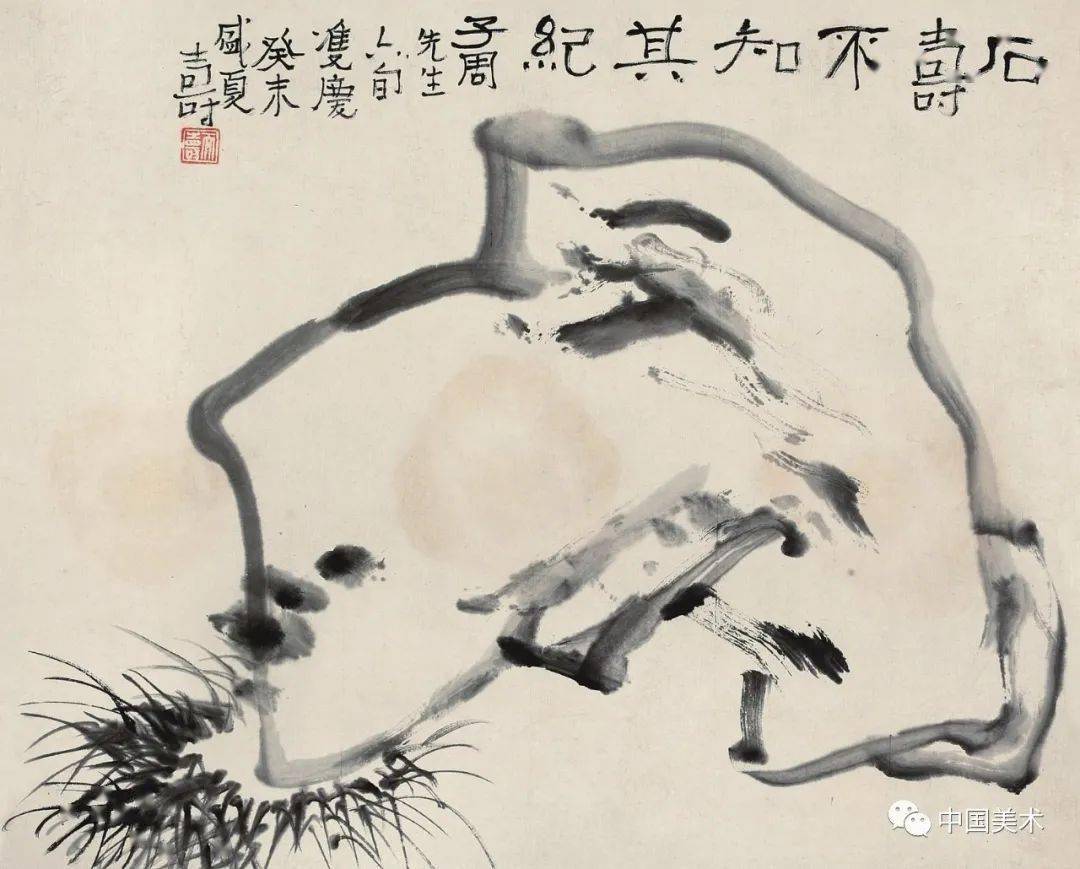 石壽不知其紀
子周
先生
六旬
雙慶
癸未
盛夏
壽
中国美术